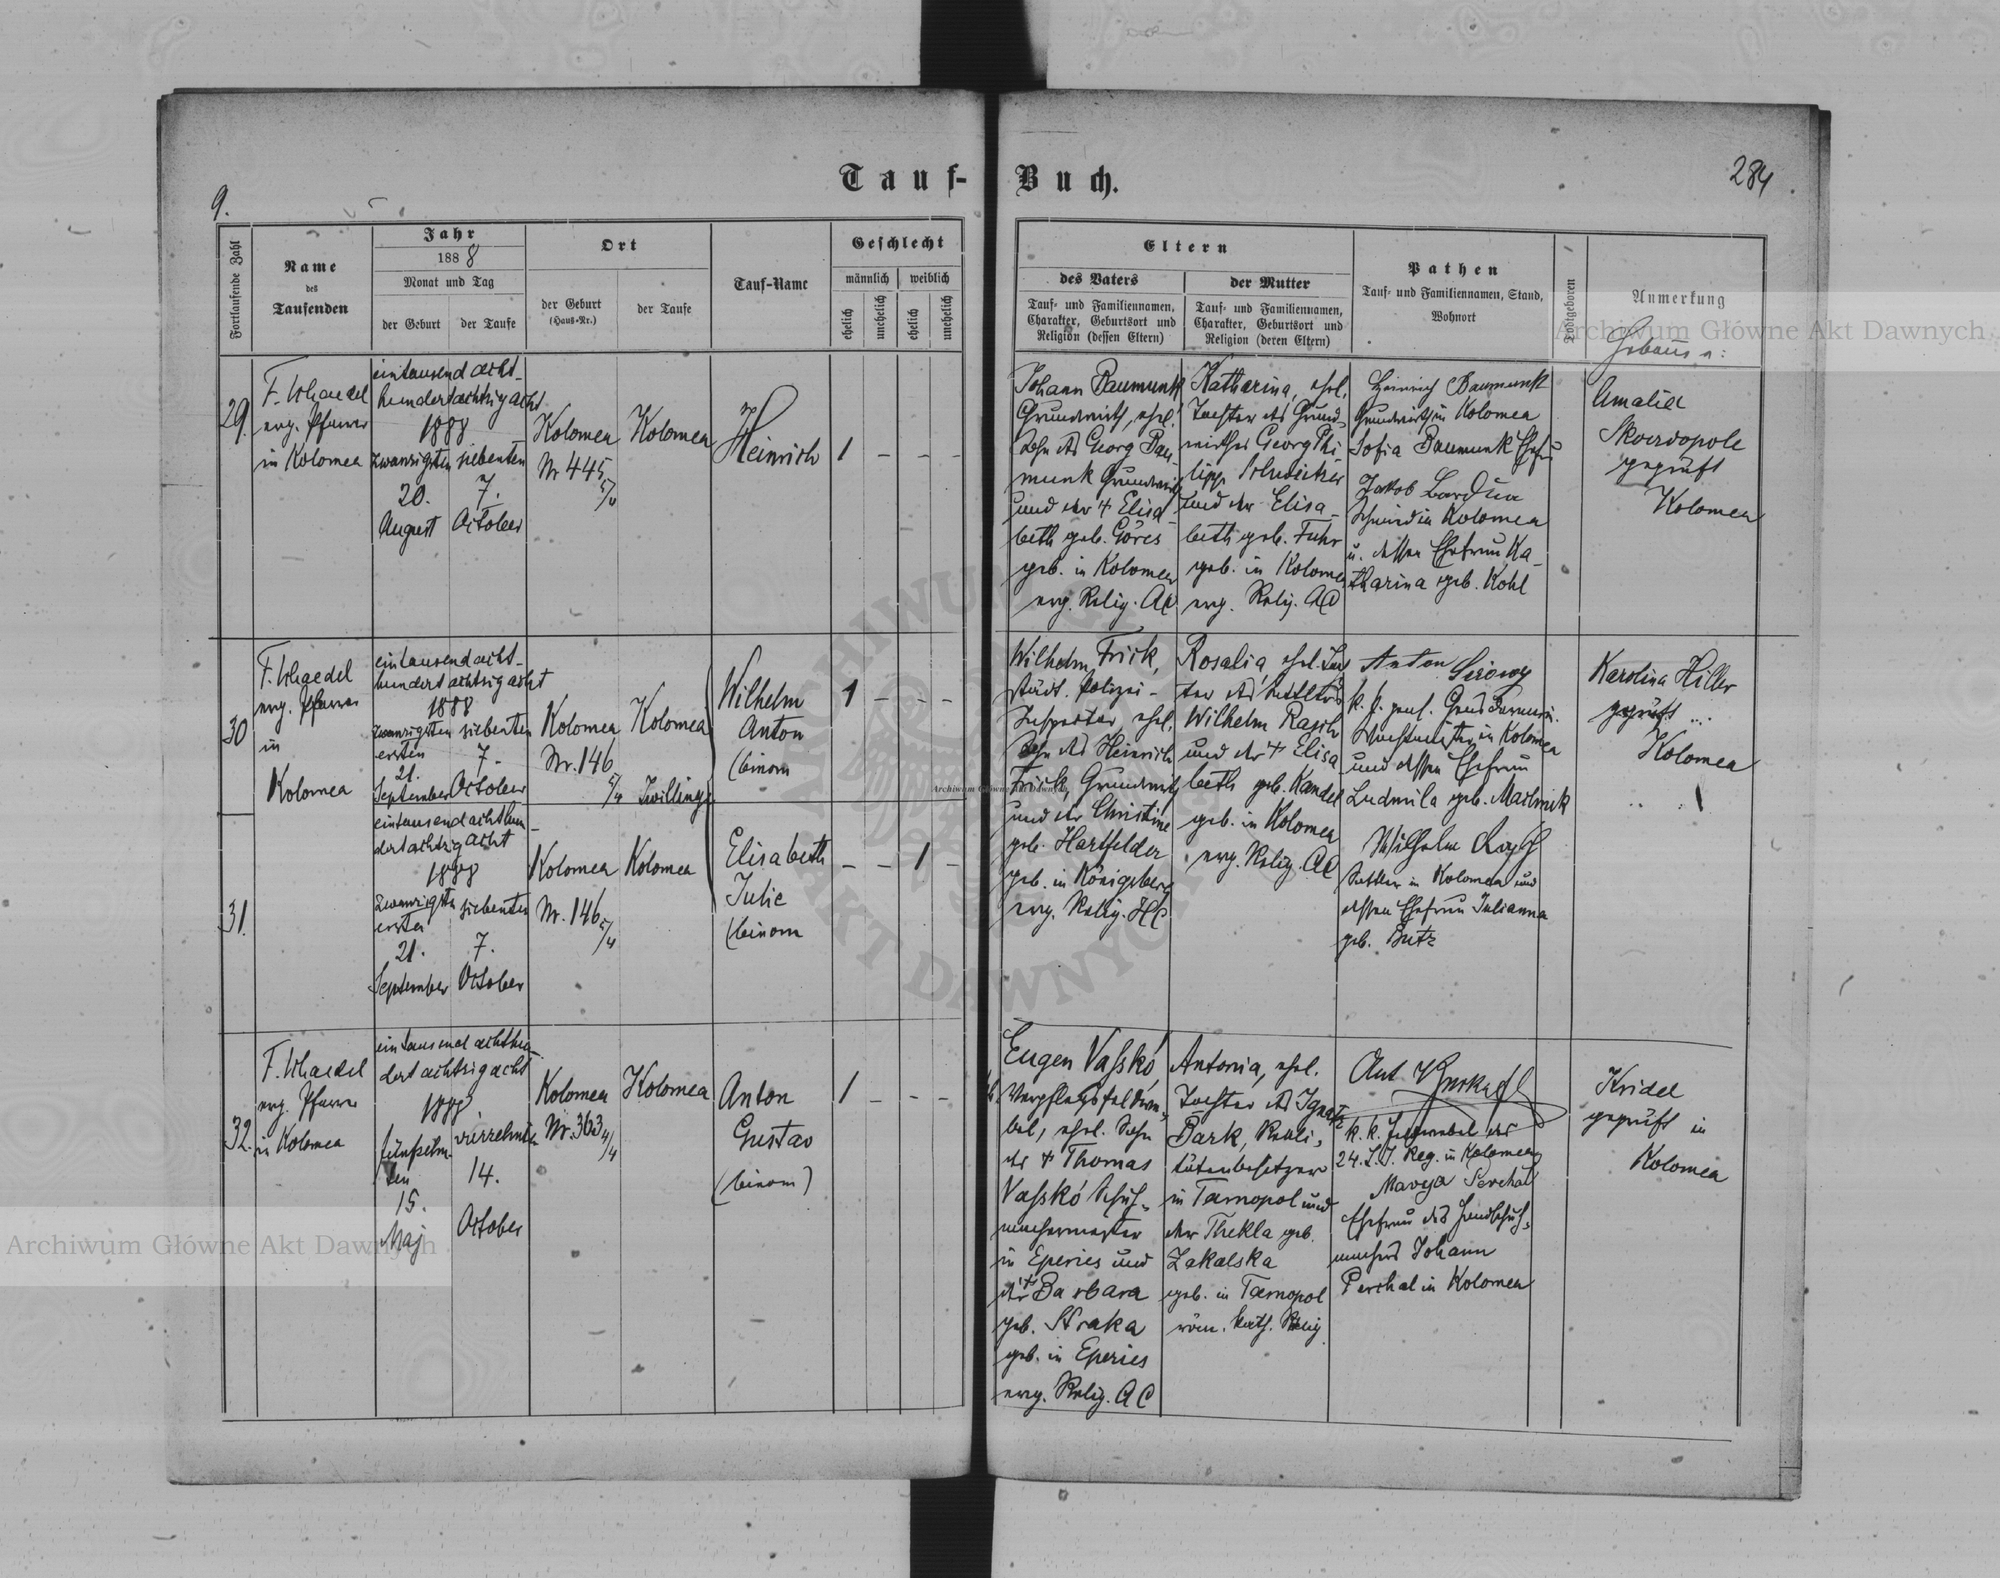 Tauf-
Buch.
9.
284
Fortlaufende Zahl
Name
des
Taufenden
Jahr
1888
Monat und Tag
der Geburt
der Taufe
Ort
der Geburt
(Haus-Nr.)
der Taufe
Tauf-Name
Geschlecht
männlich
weiblich
ehelich
unehelich
ehelich
unehelich
Eltern
des Vaters
Tauf- und Familiennamen,
Charakter, Geburtsort und
Religion (dessen Eltern)
der Mutter
Tauf- und Familiennamen,
Charakter, Geburtsort und
Religion (deren Eltern)
Pathen
Tauf- und Familiennamen, Stand,
Wohnort
Todtgeboren
Anmerkung
29.
evg. Pfarrer
in Kolomea
eintausend acht-
hundertachtzig acht
1888
zwanzigsten
20.
August
siebenten
7.
October
Kolomea
Nr 445
Kolomea
Heinrich
1 – – –
Johann Baumunk
Grundwirth, ehel.
Sohn des Georg Bau-
munk Grundwirth
und der † Elisa-
beth geb. Göres
geb. in Kolomea
evg. Relig. AC
Katharina, ehel.
Tochter des Grund-
wirthes Georg Phi-
lipp
und der Elisa-
beth geb. Fuhr
geb. in Kolomea
evg. Relig. AC
Heinrich Baumunk
Grundwirth in Kolomea
Sofia Baumunk Ehefrau
Jakob
Schmied in Kolomea
u. dessen Ehefrau Ka-
tharina geb. Kohl
Amalia
Skowdopole
geprüft
Kolomea
30
evg. Pfarrer
in
Kolomea
eintausend acht-
hundert achtzig acht
1888
zwanzigsten
ersten
21.
September
siebenten
7.
October
Kolomea
Nr. 146
Kolomea
Zwillinge
Wilhelm
Anton
(binom
1 – – –
Wilhelm Frick,
städt. Polizei-
Inspector, ehel.
Sohn des Heinrich
Frick Grundwirth
und der Christine
geb. Hartfelder
geb. in Königsberg
evg. Relig. HC
Rosalia, ehel. Toch
ter des Sattlers
Wilhelm Rasch
und der † Elisa
beth geb. Kandel
geb. in Kolomea
evg. Relig. AC
Anton
k. k. pens. Gendarmerie
Wachtmeister in Kolomea
und dessen Ehefrau
Ludmila geb.
Wilhelm
Sattler in Kolomea und
dessen Ehefrau Julianna
geb. Butz
Karolina Hiller
geprüft
Kolomea
31.
eintausend achthun-
dertachtzig acht
1888
zwanzigsten
ersten
21.
September
siebenten
7.
October
Kolomea
Nr. 146
Kolomea
Elisabeth
Julie
(binom
– – 1 –
32.
evg. Pfarrer
in Kolomea
eintausend achthun-
dert achtzig acht
1888
fünfzehn-
ten
15.
Maj
vierzehnten
14.
October
Kolomea
Nr. 363
Kolomea
Anton
Gustav
(binom)
1 – – –
Eugen Vasskó
Verpflegsfeldwe-
bel, ehel. Sohn
des † Thomas
Vasskó Schuh-
machermeister
in Eperies und
der † Barbara
geb. Straka
geb. in Eperies
evg. Relig. AC
Antonia, ehel.
Tochter des Ignatz
Bark, Reali-
tätenbesitzer
in Tarnopol und
der Thekla geb.
Zakalska
geb. in Tarnopol
röm. kath. Relig
Ant
k. k. Feldwebel des
24. L. I. Reg. in Kolomea
Marya Perchal
Ehefrau des Handschuh-
machers Johann
Perchal in Kolomea
Kridel
geprüft in
Kolomea
Archiwum Główne Akt Dawnych
Archiwum Główne Akt Dawnych,
ARCHIWUM
AKT DAWNYCH